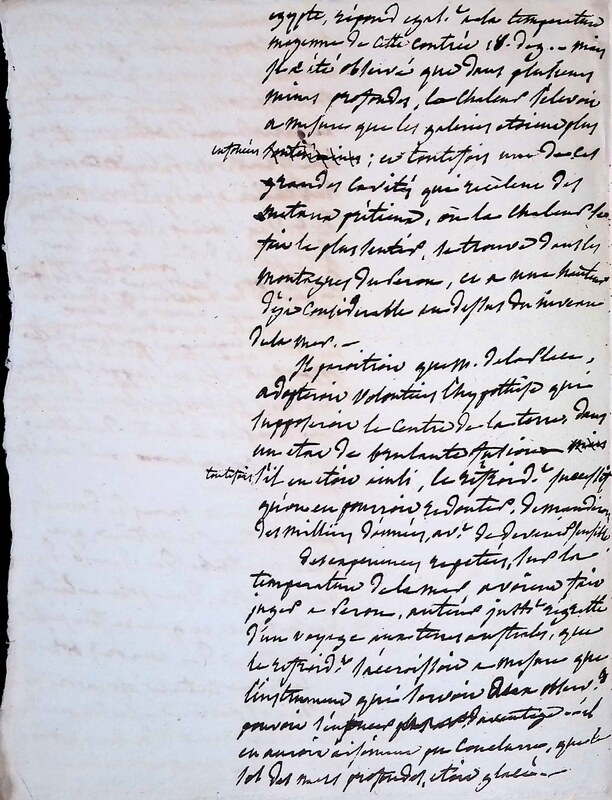 egypte, répond egal.t a la temperature
moyenne de cette contrée 18. deg. — mais
il a été observé que dans plusieurs
mines profondes, la chaleur s'elevoit
a mesure que les galeries etoient plus
enfoncées ; et toutefois une de ces
grandes cavités qui recelent des
metaux prétieux, où la chaleur se
fait le plus sentir, se trouve dans les
montagnes du Perou, et a une hauteur
déja considerable au dessus du niveau
de la mer. —
Il paroitroit que M. de la Place,
adopteroit volontiers l'hypothèse qui
supposeroit le centre de la terre, dans
un etat de brulante fusion mais
toutefois s'il en etoit ainsi, le refroid.t successif
qu'on en pourroit redouter, demanderoit
des milliers d'années, av.t de devenir sensible
Des experiences repetées, sur la
temperature de la mer avoient fait
juger a Peron, auteur just.t regretté
d'un voyage aux terres australes, que
le refroid.t s'accroissoit a mesure que
l'instrument qui servoit aux observ.s
pouvoit s'enfoncer davantage — il
en auroit aisément pu conclure, que le
sol des mers profondes, etoit glacé. —